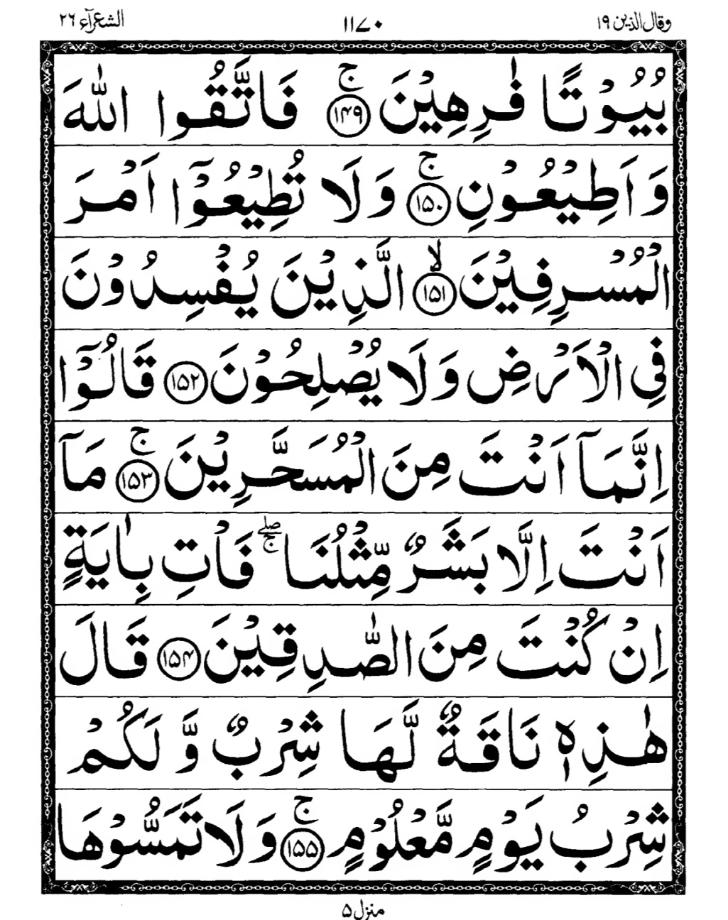 وقال الذين ١٩ ١١٧٠ الشعرآء ٢٦
بُيُوْتًا فٰرِهِيْنَ ۚ﴿۱۴۹﴾ فَاتَّقُوا اللّٰهَ
وَاَطِيْعُوْنِ ۚ﴿۱۵۰﴾ وَلَا تُطِيْعُوْۤا اَمْرَ
الْمُسْرِفِيْنَ ۙ﴿۱۵۱﴾ الَّذِيْنَ يُفْسِدُوْنَ
فِي الْاَرْضِ وَلَا يُصْلِحُوْنَ ﴿۱۵۲﴾ قَالُوْۤا
اِنَّمَاۤ اَنْتَ مِنَ الْمُسَحَّرِيْنَ ۚ﴿۱۵۳﴾ مَاۤ
اَنْتَ اِلَّا بَشَرٌ مِّثْلُنَا ۖۚ فَاْتِ بِاٰيَةٍ
اِنْ كُنْتَ مِنَ الصّٰدِقِيْنَ ﴿۱۵۴﴾ قَالَ
هٰذِهٖ نَاقَةٌ لَّهَا شِرْبٌ وَّلَكُمْ
شِرْبُ يَوْمٍ مَّعْلُوْمٍ ۚ﴿۱۵۵﴾ وَلَا تَمَسُّوْهَا
منزل ۵